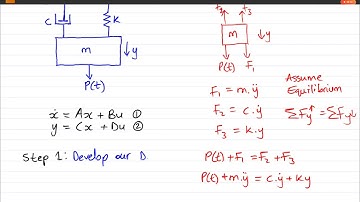 c
K
m
↓y
P(t)
ẋ = Ax + Bu ①
y = Cx + Du ②
Step 1: Develop our D.
F₃
m
↓y
P(t)
F₁
F₁ = m.ÿ
F₂ = c.ẏ
F₃ = k.y
Assume
Equilibrium
ΣFy↑ = ΣFy↓
P(t) + F₁ = F₂ + F₃
P(t) + m.ÿ = c.ẏ + ky